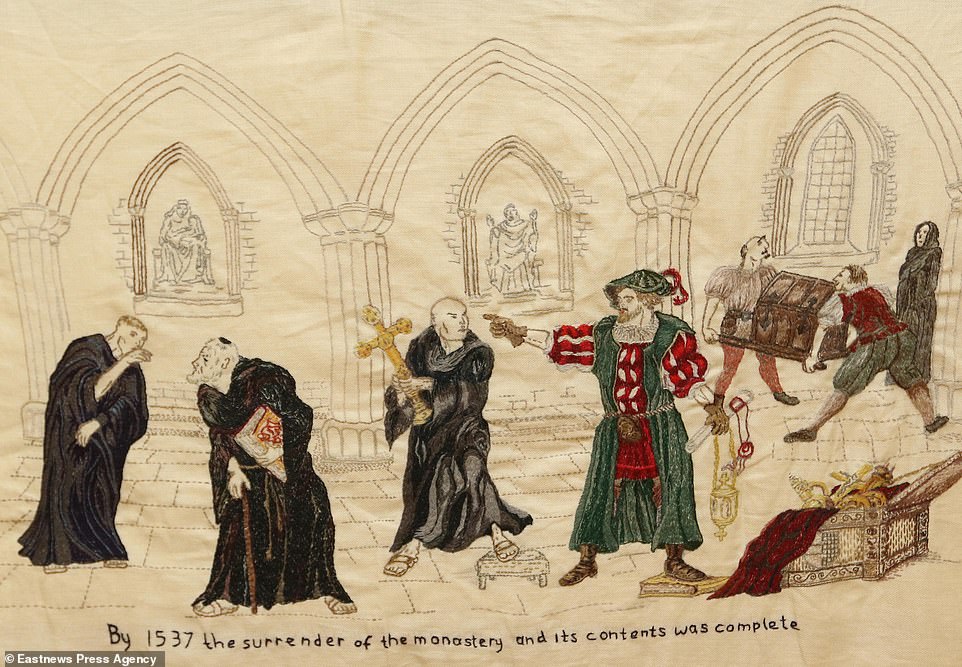 By 1537 the surrender of the monastery and its contents was complete
© Eastnews Press Agency